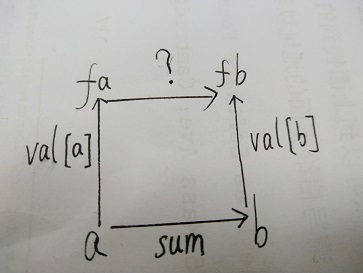 ?
fa fb
val[a] val[b]
a sum b